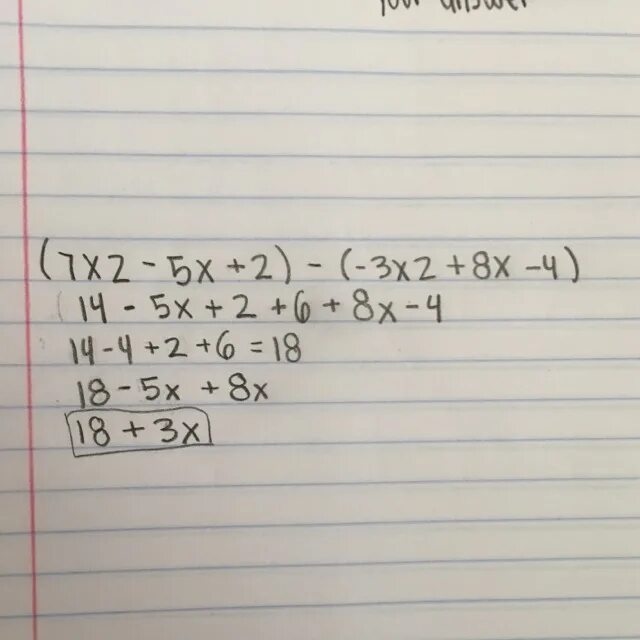 your answer
(7x2 - 5x + 2) - (-3x2 + 8x - 4)
14 - 5x + 2 + 6 + 8x - 4
14 - 4 + 2 + 6 = 18
18 - 5x + 8x
18 + 3x